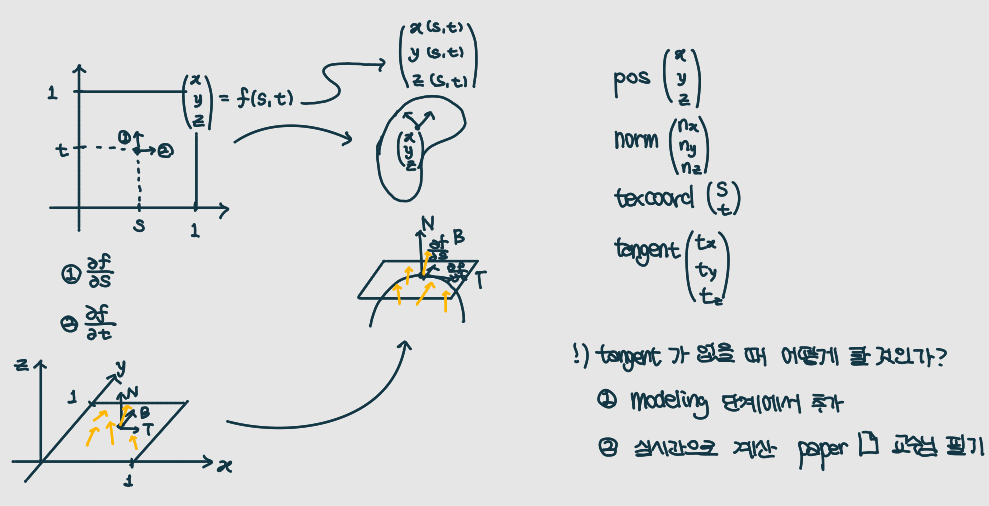 x(s,t)
y(s,t)
z(s,t)
1
x
y
z
= f(s,t)
t
①
②
s
1
x
y
z
① ∂f/∂s
② ∂f/∂t
N
∂f/∂s B
T
z
y
1
N
B
T
x
1
pos (x y z)
norm (nx ny nz)
texcoord (s t)
tangent (tx ty tz)
!) tangent 가 없을 때 어떻게 할 것인가?
① modeling 단계에서 추가
② 실시간으로 계산 paper 교수님 필기